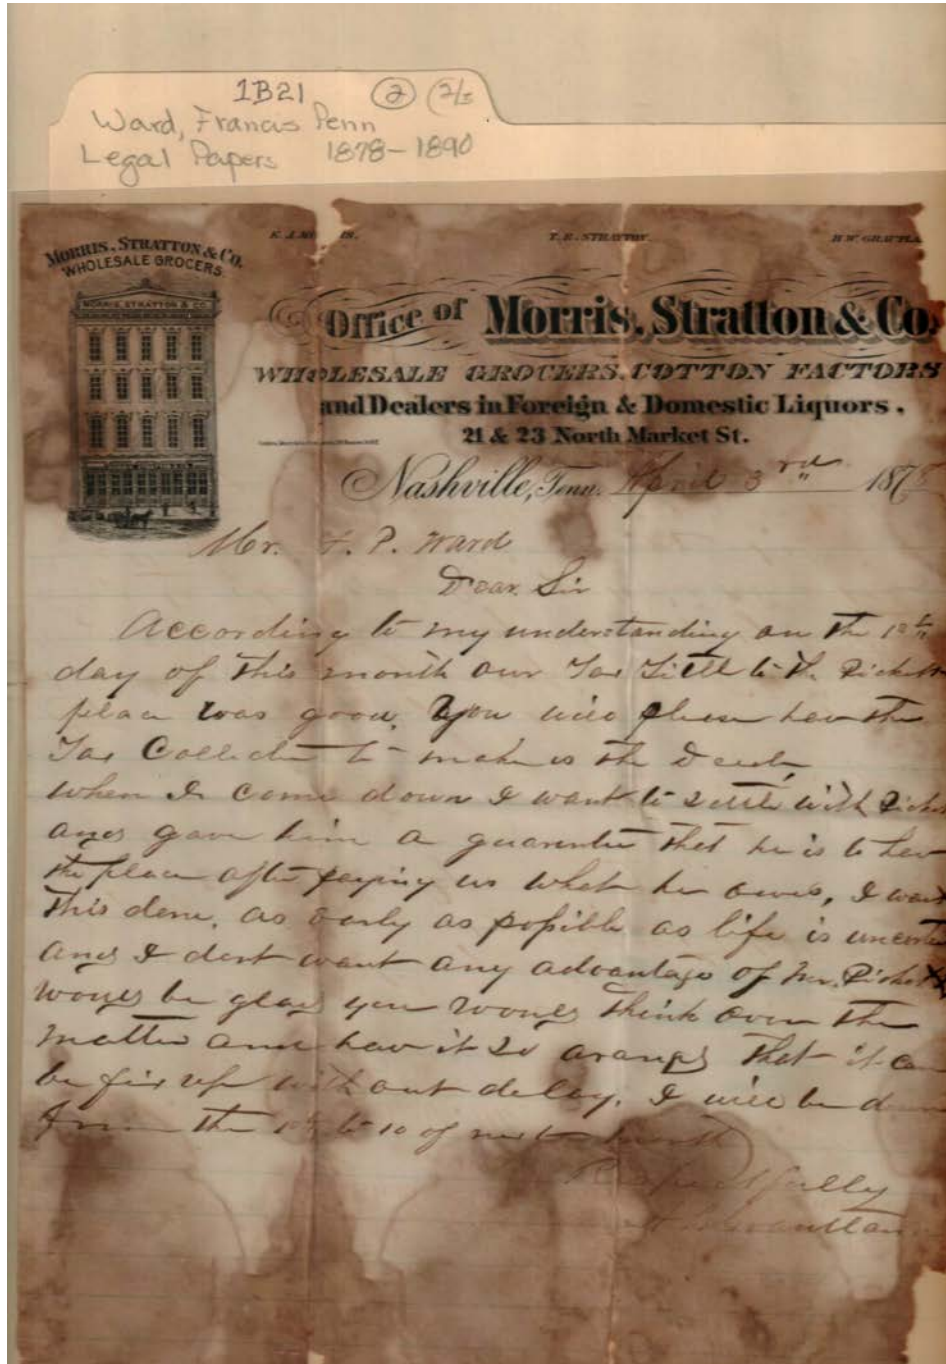 1B21 2 2/5
Ward, Francis Penn
Legal Papers 1878-1890
MORRIS, STRATTON & CO.
WHOLESALE GROCERS
MORRIS, STRATTON & CO.
T. E. STRATTON.
Office of Morris, Stratton & Co.
WHOLESALE GROCERS, COTTON FACTORS
and Dealers in Foreign & Domestic Liquors.
21 & 23 North Market St.
Nashville, Tenn. April 3rd 1878
Mr. F. P. Ward
Dear Sir
According to my understanding on the 1st
day of this month our Tax Tittle to the Pickett
place was good. You will please have the
Tax Collector to make us the Deed,
when I come down I want to settle with
and gave him a guarantee that he is to have
the place after paying us what he owes, I want
this done, as early as possible as life is
and I dont want any advantage of Mr. Pickett
would be glad you would think over the
matter and have it so arangd that it can
be fix up without delay. I will be down
from the 1st to 10 of next month
Respectfully